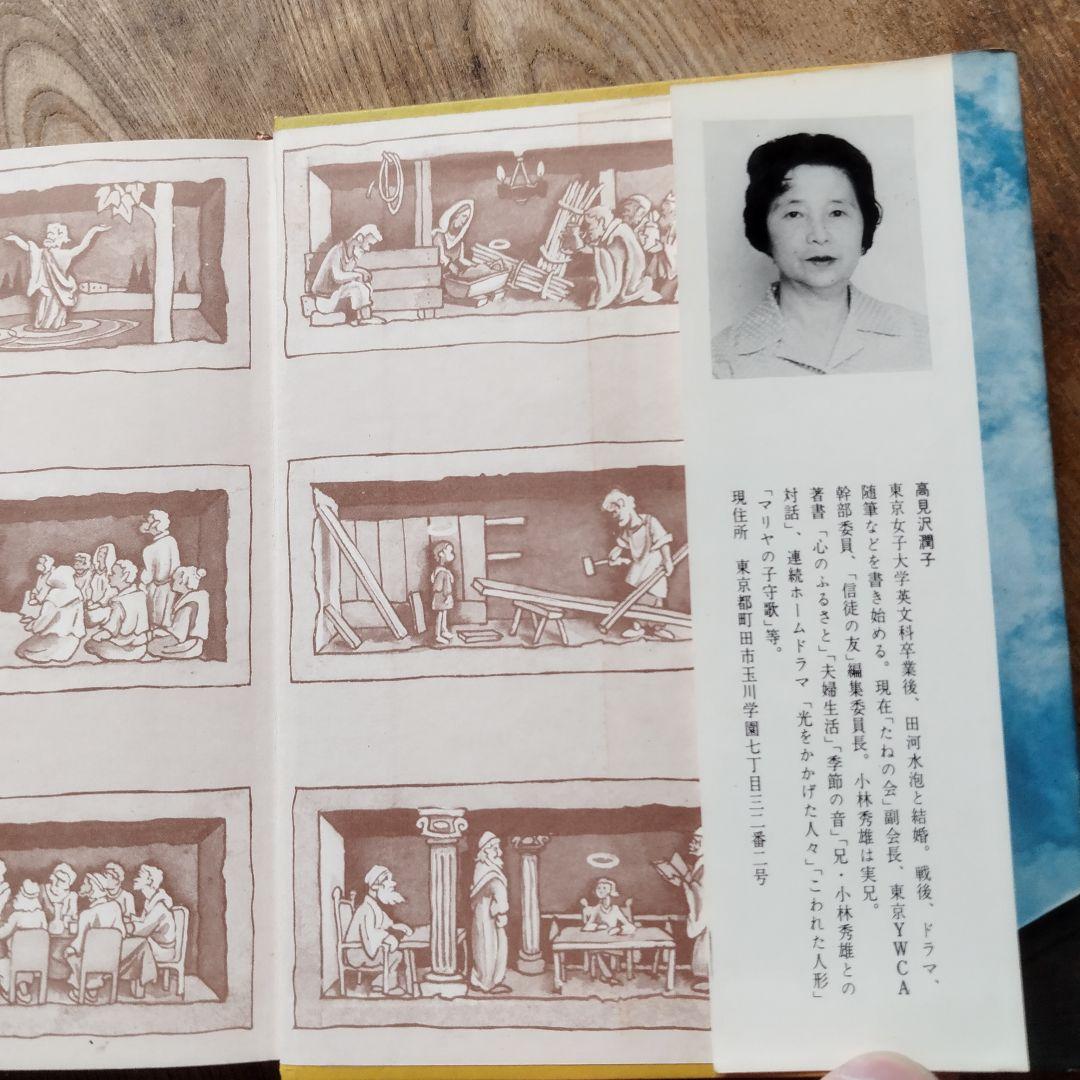 高見沢潤子
東京女子大学英文科卒業後、田河水泡と結婚。戦後、ドラマ、
随筆などを書き始める。現在「たねの会」副会長、東京YWCA
幹部委員、「信徒の友」編集委員長。小林秀雄は実兄。
著書「心のふるさと」「夫婦生活」「季節の音」「兄・小林秀雄との
対話」、連続ホームドラマ「光をかかげた人々」「こわれた人形」
「マリヤの子守歌」等。
現住所　東京都町田市玉川学園七丁目三二番二号